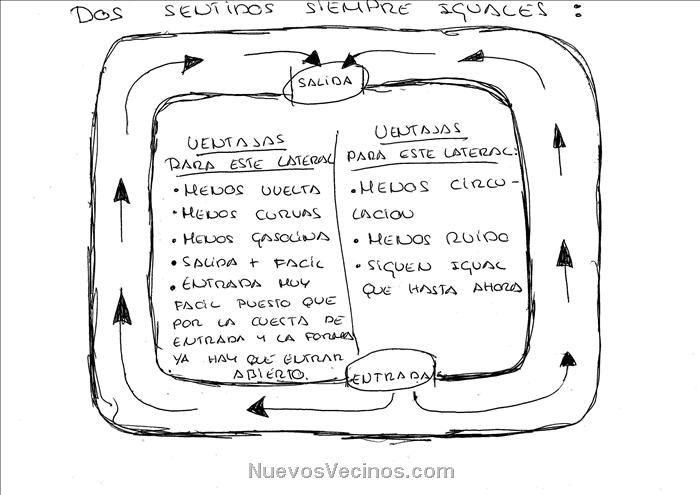 DOS SENTIDOS SIEMPRE IGUALES :
SALIDA
VENTAJAS
PARA ESTE LATERAL
• MENOS VUELTA
• MENOS CURVAS
• MENOS GASOLINA
• SALIDA + FACIL
• ENTRADA MUY
FACIL PUESTO QUE
POR LA CUESTA DE
ENTRADA Y LA FORMA
YA HAY QUE ENTRAR
ABIERTO.
VENTAJAS
PARA ESTE LATERAL:
• MENOS CIRCU-
LACION
• MENOS RUIDO
• SIGUEN IGUAL
QUE HASTA AHORA
ENTRADA
NuevosVecinos.com